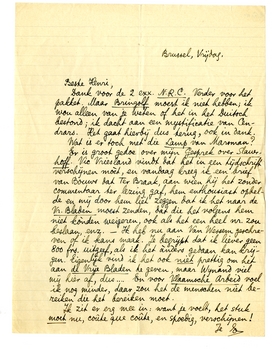 Brussel, Vrijdag.
Beste Henri,
Dank voor de 2 exx. N.R.C. Verder voor het
pakket. Maar Bringolf moest ik niet hebben; ik
wou alleen van je weten of het in het Duitsch
bestond; ik dacht aan een mystificatie van Cen-
drars. Het gaat hierbij dus terug, ook in dank.
Wat is er toch met die Lamp van Marsman?
Er is groot gedoe over mijn Gesprek over Slauer-
hoff. Vic Vriesland vindt dat het in een tijdschrift
verschijnen moet, en vandaag kreeg ik een brief
van Bouws dat Ter Braak, aan wien hij het zonder
commentaar ter lezing gaf, hem enthousiast opbel-
de en mij door hem liet zeggen dat ik het naar de
Vr. Bladen moest zenden, dat die het volgens hem
niet konden weigeren, ook als het een heel nr. zou
beslaan, enz. — Ik heb nu aan Van Wessem geschre-
ven of ik kans maak. Je begrijpt dat ik liever geen
800 fr. uitgeef, als ik het anders gedaan kan krij-
gen. Eigenlijk vind ik het ook niet prettig om het
aan de Vrije Bladen te geven, maar Wijnand viel
mij hier af, dus.... En voor Vlaamsche Arbeid voel
ik nog minder, daar zou het de menschen niet be-
reiken die het bereiken moet.
Ik zit er erg mee in: want je voelt, het stuk
moet nu, coûte que coûte, en spoedig, verschijnen!
Je E.